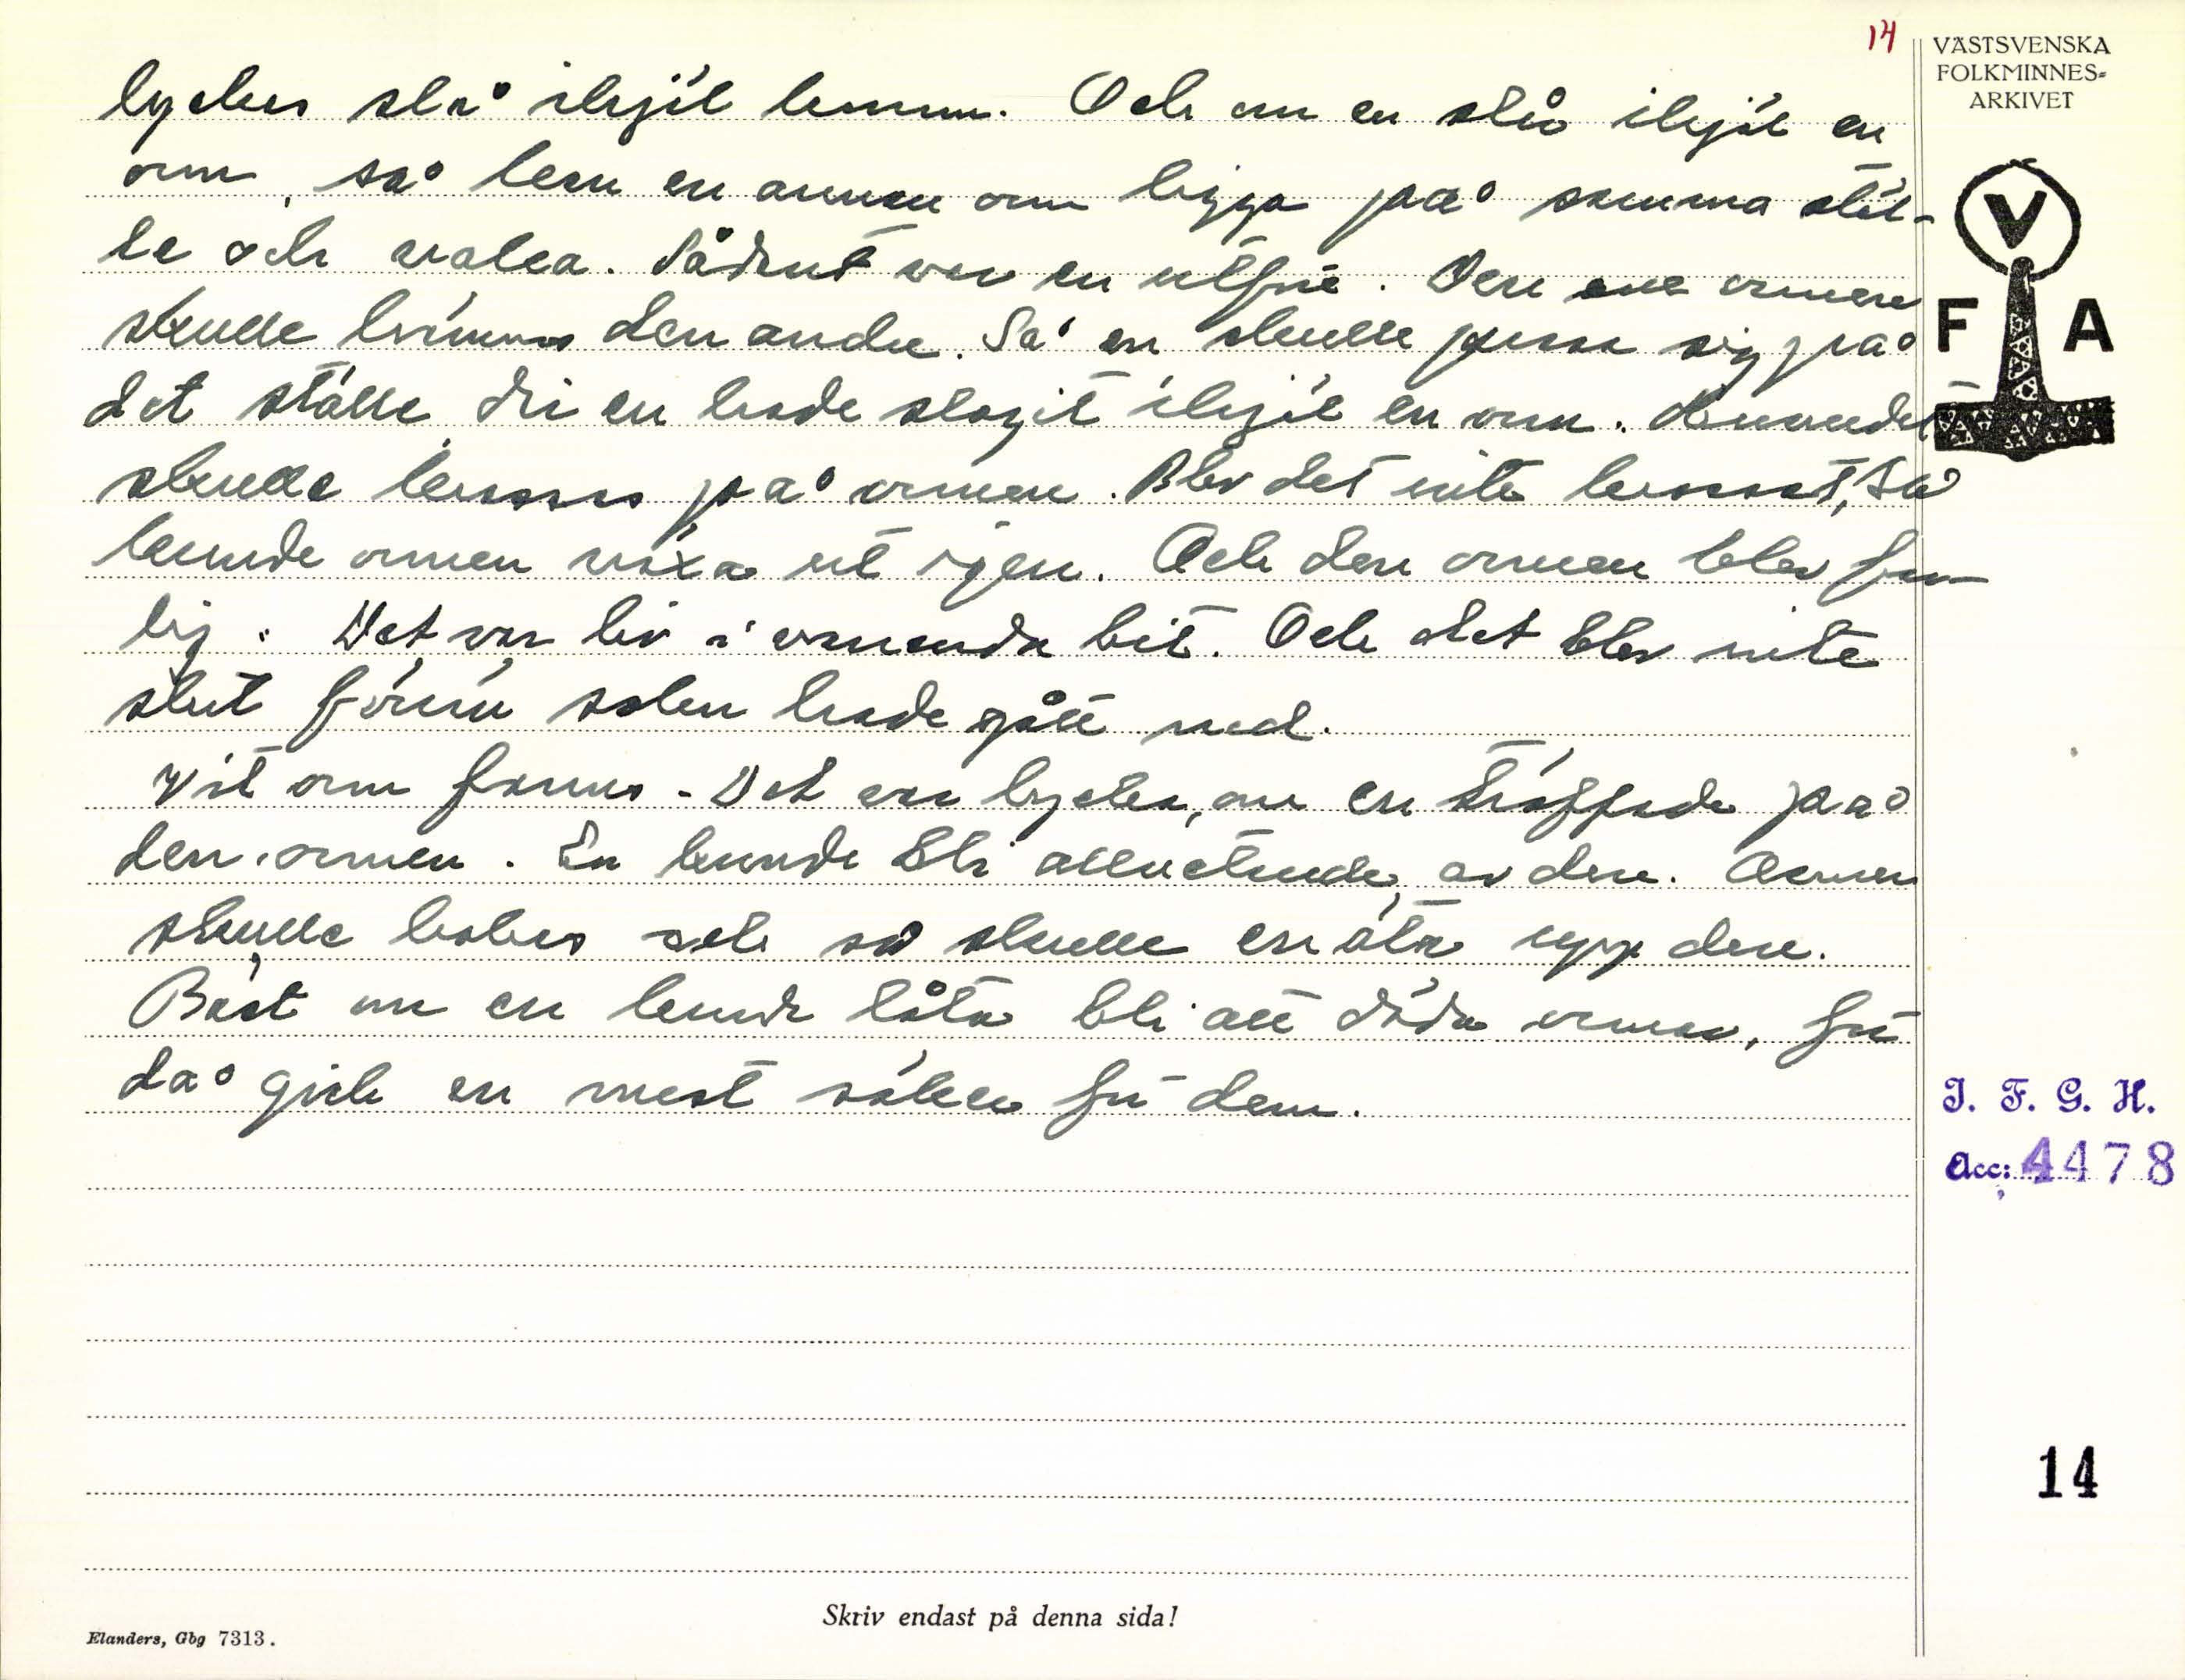 14
VÄSTSVENSKA
FOLKMINNES-
ARKIVET
lyckas slå ihjäl honom. Och om en slår ihjäl en
orm, så kan en annan orm ligga på samma stäl-
le och vakta. Sådant var en utför. Den ene ormen
skulle hämnas den andre. Så en skulle passa sig på
det ställe där en hade slagit ihjäl en orm. Huvudet
skulle krossas på ormen. Blev det inte krossat, så
kunde ormen växa ut igen. Och den ormen blev far-
lig. Det var liv i varenda bit. Och det blev inte
slut förrän solen hade gått ned.
Vit orm fanns. Det var lycka, om en träffade på
den ormen. En kunde bli allvetande av den. Ormen
skulle kokas och så skulle en äta upp den.
Bäst om en kunde låta bli att döda ormar, för
då gick en mest säker för dem.
V
F A
I. F. G. H.
Acc: 4478
14
Skriv endast på denna sida!
Elanders, Gbg 7313.